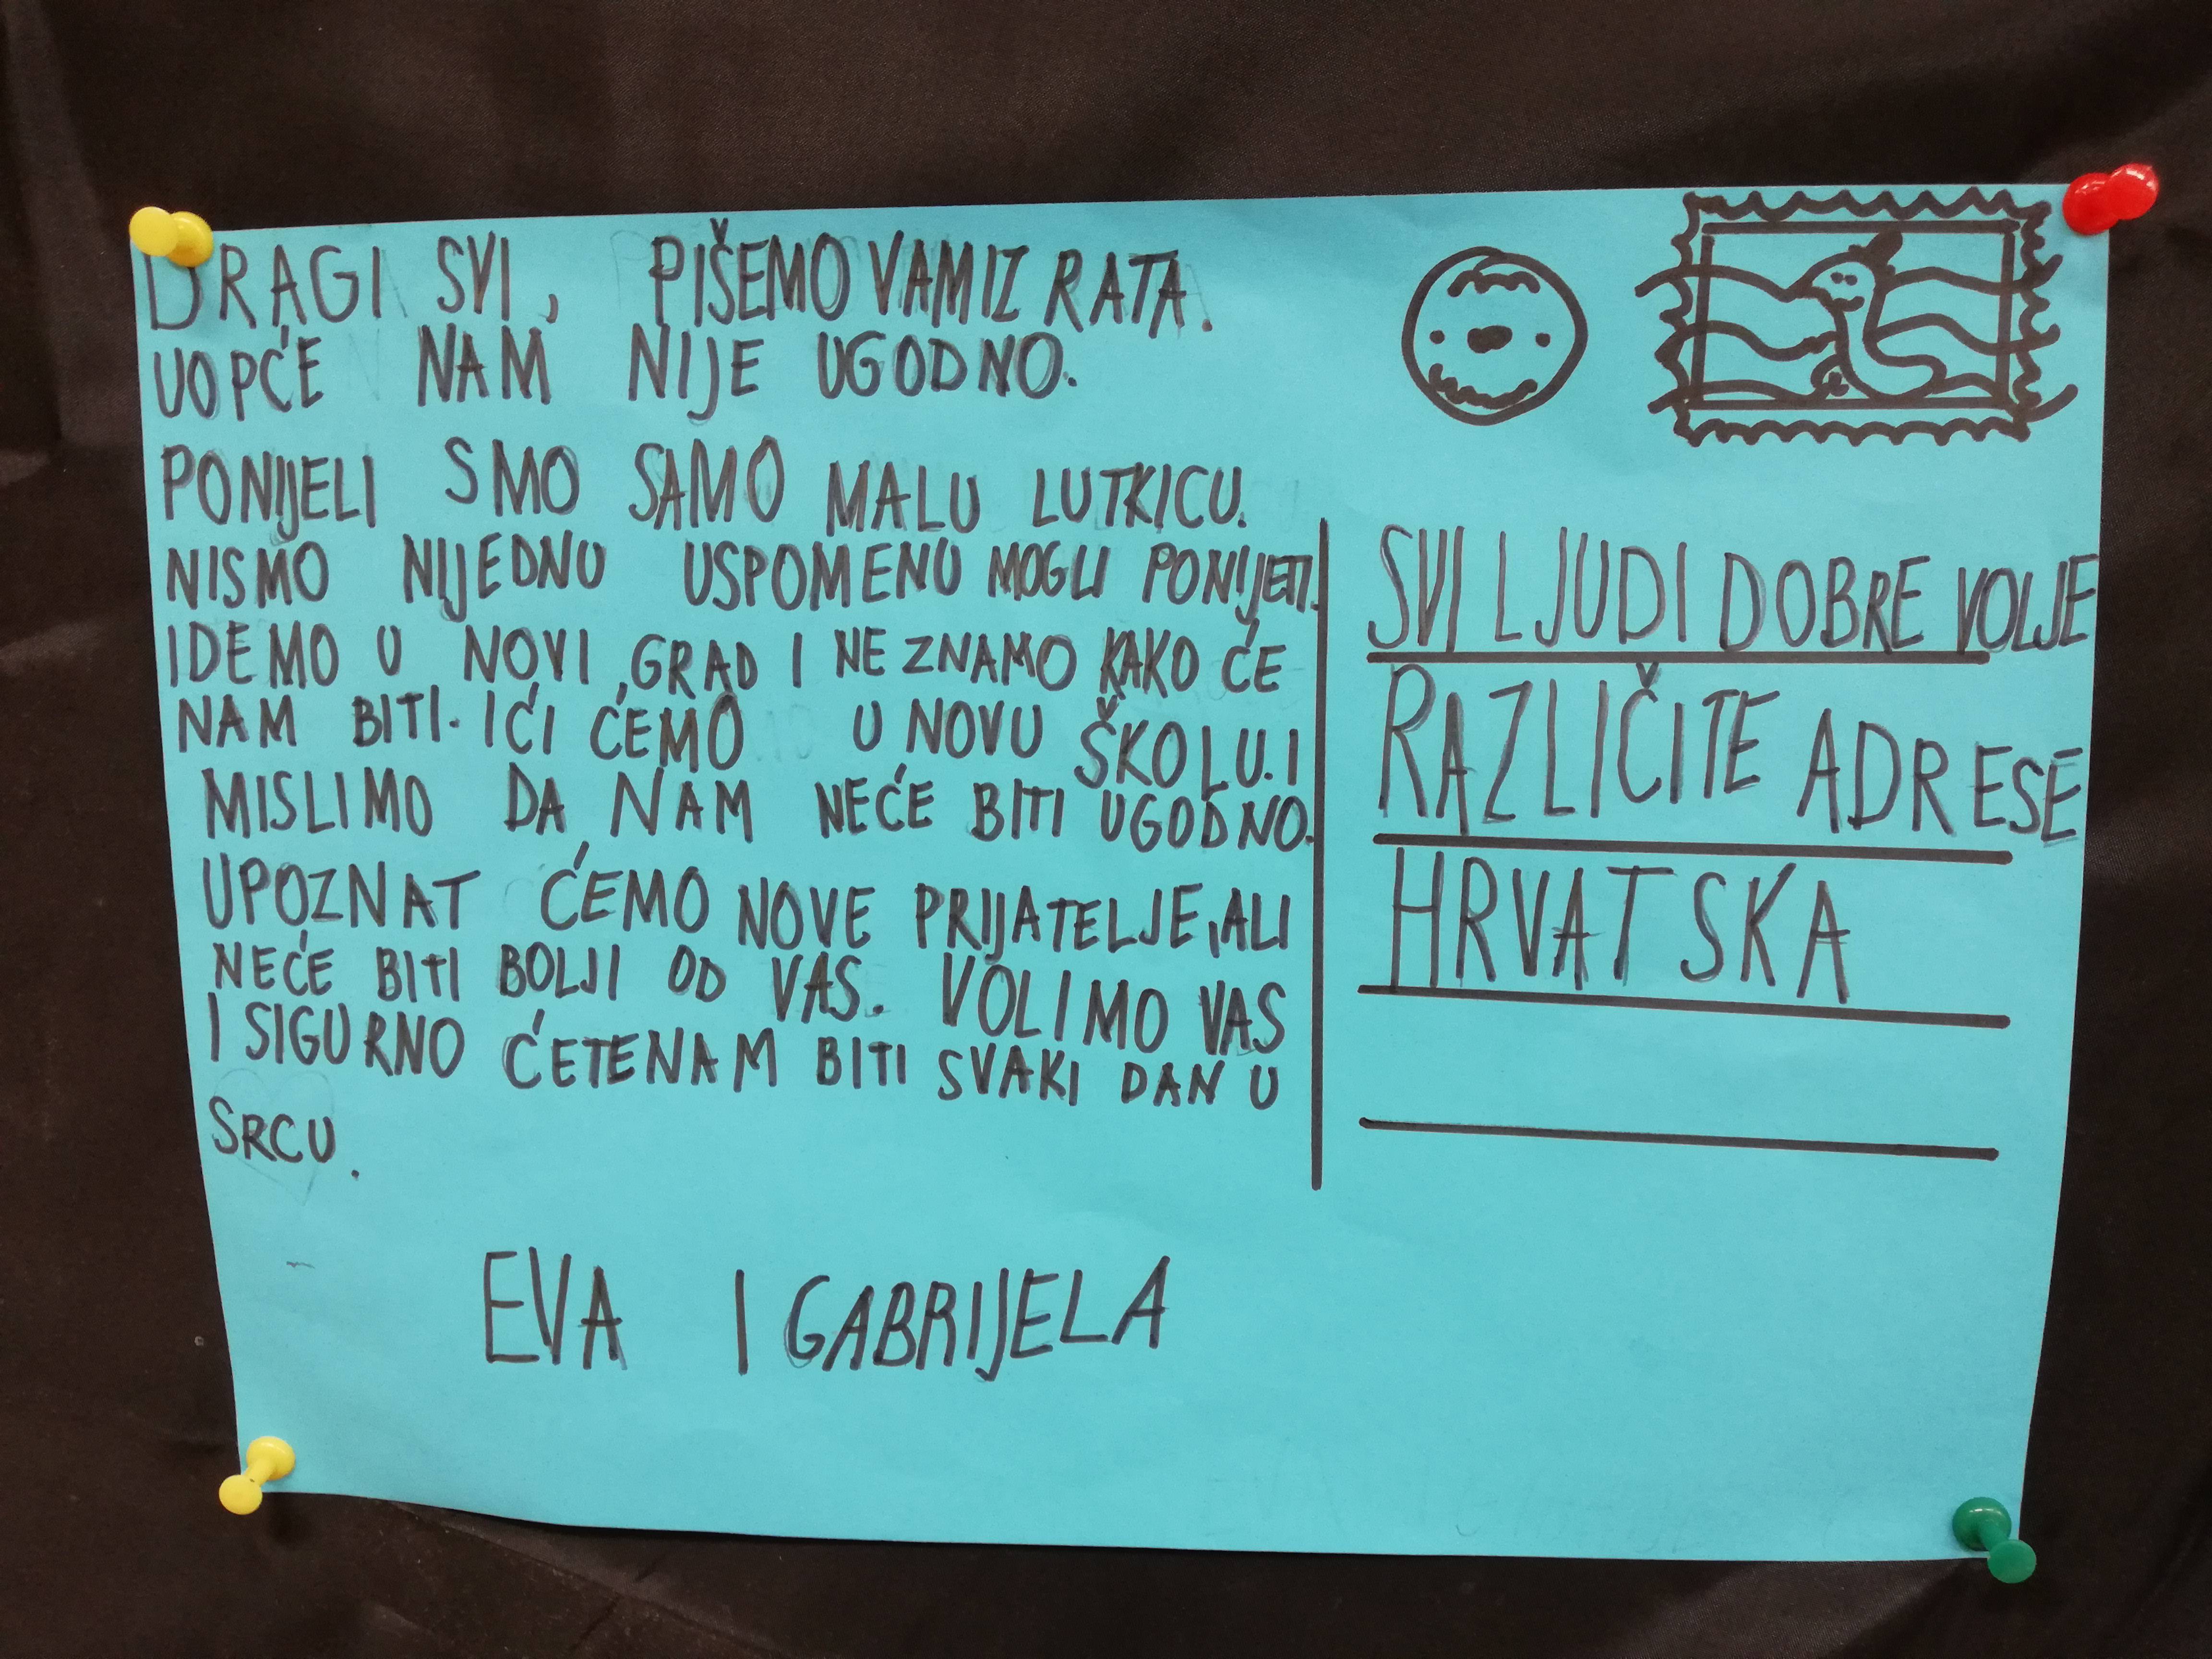 DRAGI SVI, PIŠEMO VAM IZ RATA.
UOPĆE NAM NIJE UGODNO.
PONIJELI SMO SAMO MALU LUTKICU.
NISMO NIJEDNU USPOMENU MOGLI PONIJETI.
IDEMO U NOVI GRAD I NE ZNAMO KAKO ĆE
NAM BITI. IĆI ĆEMO U NOVU ŠKOLU. I
MISLIMO DA NAM NEĆE BITI UGODNO.
UPOZNAT ĆEMO NOVE PRIJATELJE, ALI
NEĆE BITI BOLJI OD VAS. VOLIMO VAS
I SIGURNO ĆETE NAM BITI SVAKI DAN U
SRCU.
EVA I GABRIJELA
SVI LJUDI DOBRE VOLJE
RAZLIČITE ADRESE
HRVATSKA